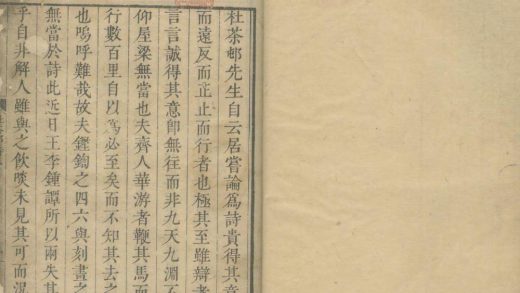 杜茶邨先生自云居嘗論爲詩貴得其意
而遠反而正止而行者也極其至雖辯者
言言誠得其意卽無往而非九天九淵不
仰屋梁無當也夫齊人華游者鞭其馬而
行數百里自以爲必至矣而不知其去之
也嗚呼難哉故夫鏗鈞之四六與刻畫之
無當於詩此近日王李鍾譚所以兩失其
乎自非解人雖與之飲啖未見其可而況